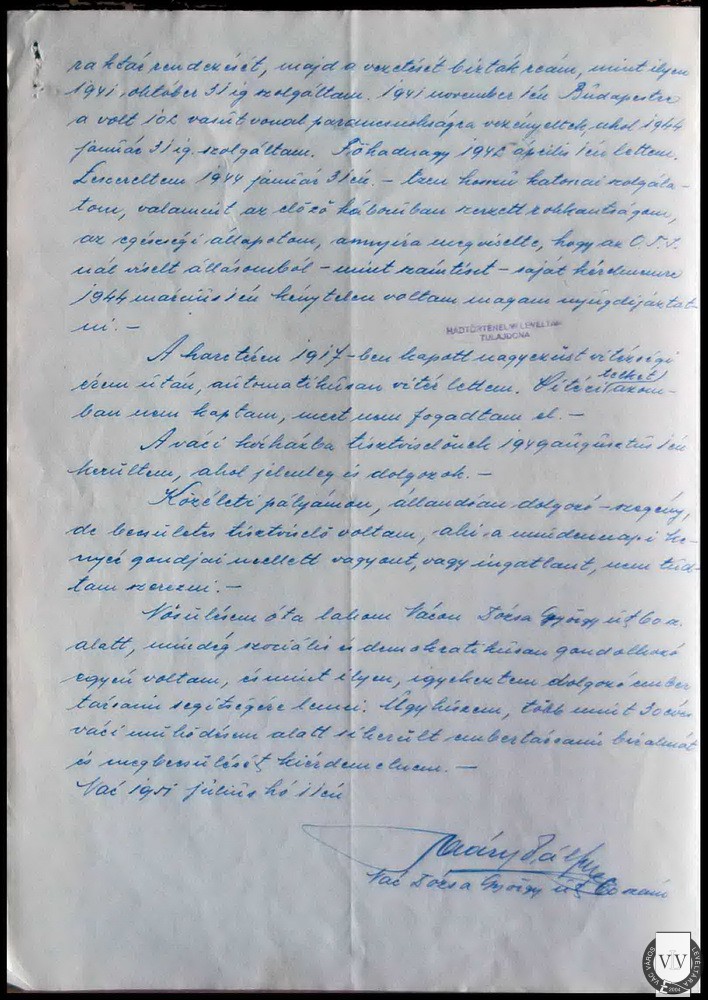 raktár rendezését, majd a vezetését bízták reám, mint ilyen
1941. október 31ig szolgáltam. 1941 november 1én Budapestre
a volt 102 vasút vonal parancsnokságra vezényeltek, ahol 1944
január 31ig szolgáltam. Főhadnagy 1942 április 1én lettem.
Leszereltem 1944 január 31én. - Ezen hosszú katonai szolgála-
tom, valamint az előző háborúban szerzett rokkantságom,
az egészségi állapotom, annyira megviselte, hogy az O.T.I.
nál viselt állásomból - mint számtiszt - saját kérelmemre
1944 március 1én kénytelen voltam magam nyugdíjaztat-
ni. -
HADTÖRTÉNELMI LEVÉLTÁR
TULAJDONA
A harctéren 1917-ben kapott nagyezüst vitézségi
érem után, automatikusan vitéz lettem. Vitézi telket azon-
ban nem kaptam, mert nem fogadtam el. -
A váci kórházba tisztviselőnek 1949 augusztus 1én
kerültem, ahol jelenleg is dolgozok. -
Közéleti pályámon, állandóan dolgozó - szegény,
de becsületes tisztviselő voltam, aki a mindennapi ke-
nyér gondjai mellett vagyont, vagy ingatlant, nem tud-
tam szerezni. -
Nősülésem óta lakom Vácon Dózsa György út 60 a.
alatt, mindég szociális és demokratikusan gondolkozó
egyén voltam, és mint ilyen, igyekeztem dolgozó ember
társaim segítségére lenni. Úgy hiszem, több mint 30 éves
váci működésem alatt sikerült embertársaim bizalmát
és megbecsülését kiérdemelnem. -
Vác 1951 július hó 11én
Pál
Vác Dózsa György út 60 szám
VÁC VÁROS LEVÉLTÁRA
VV